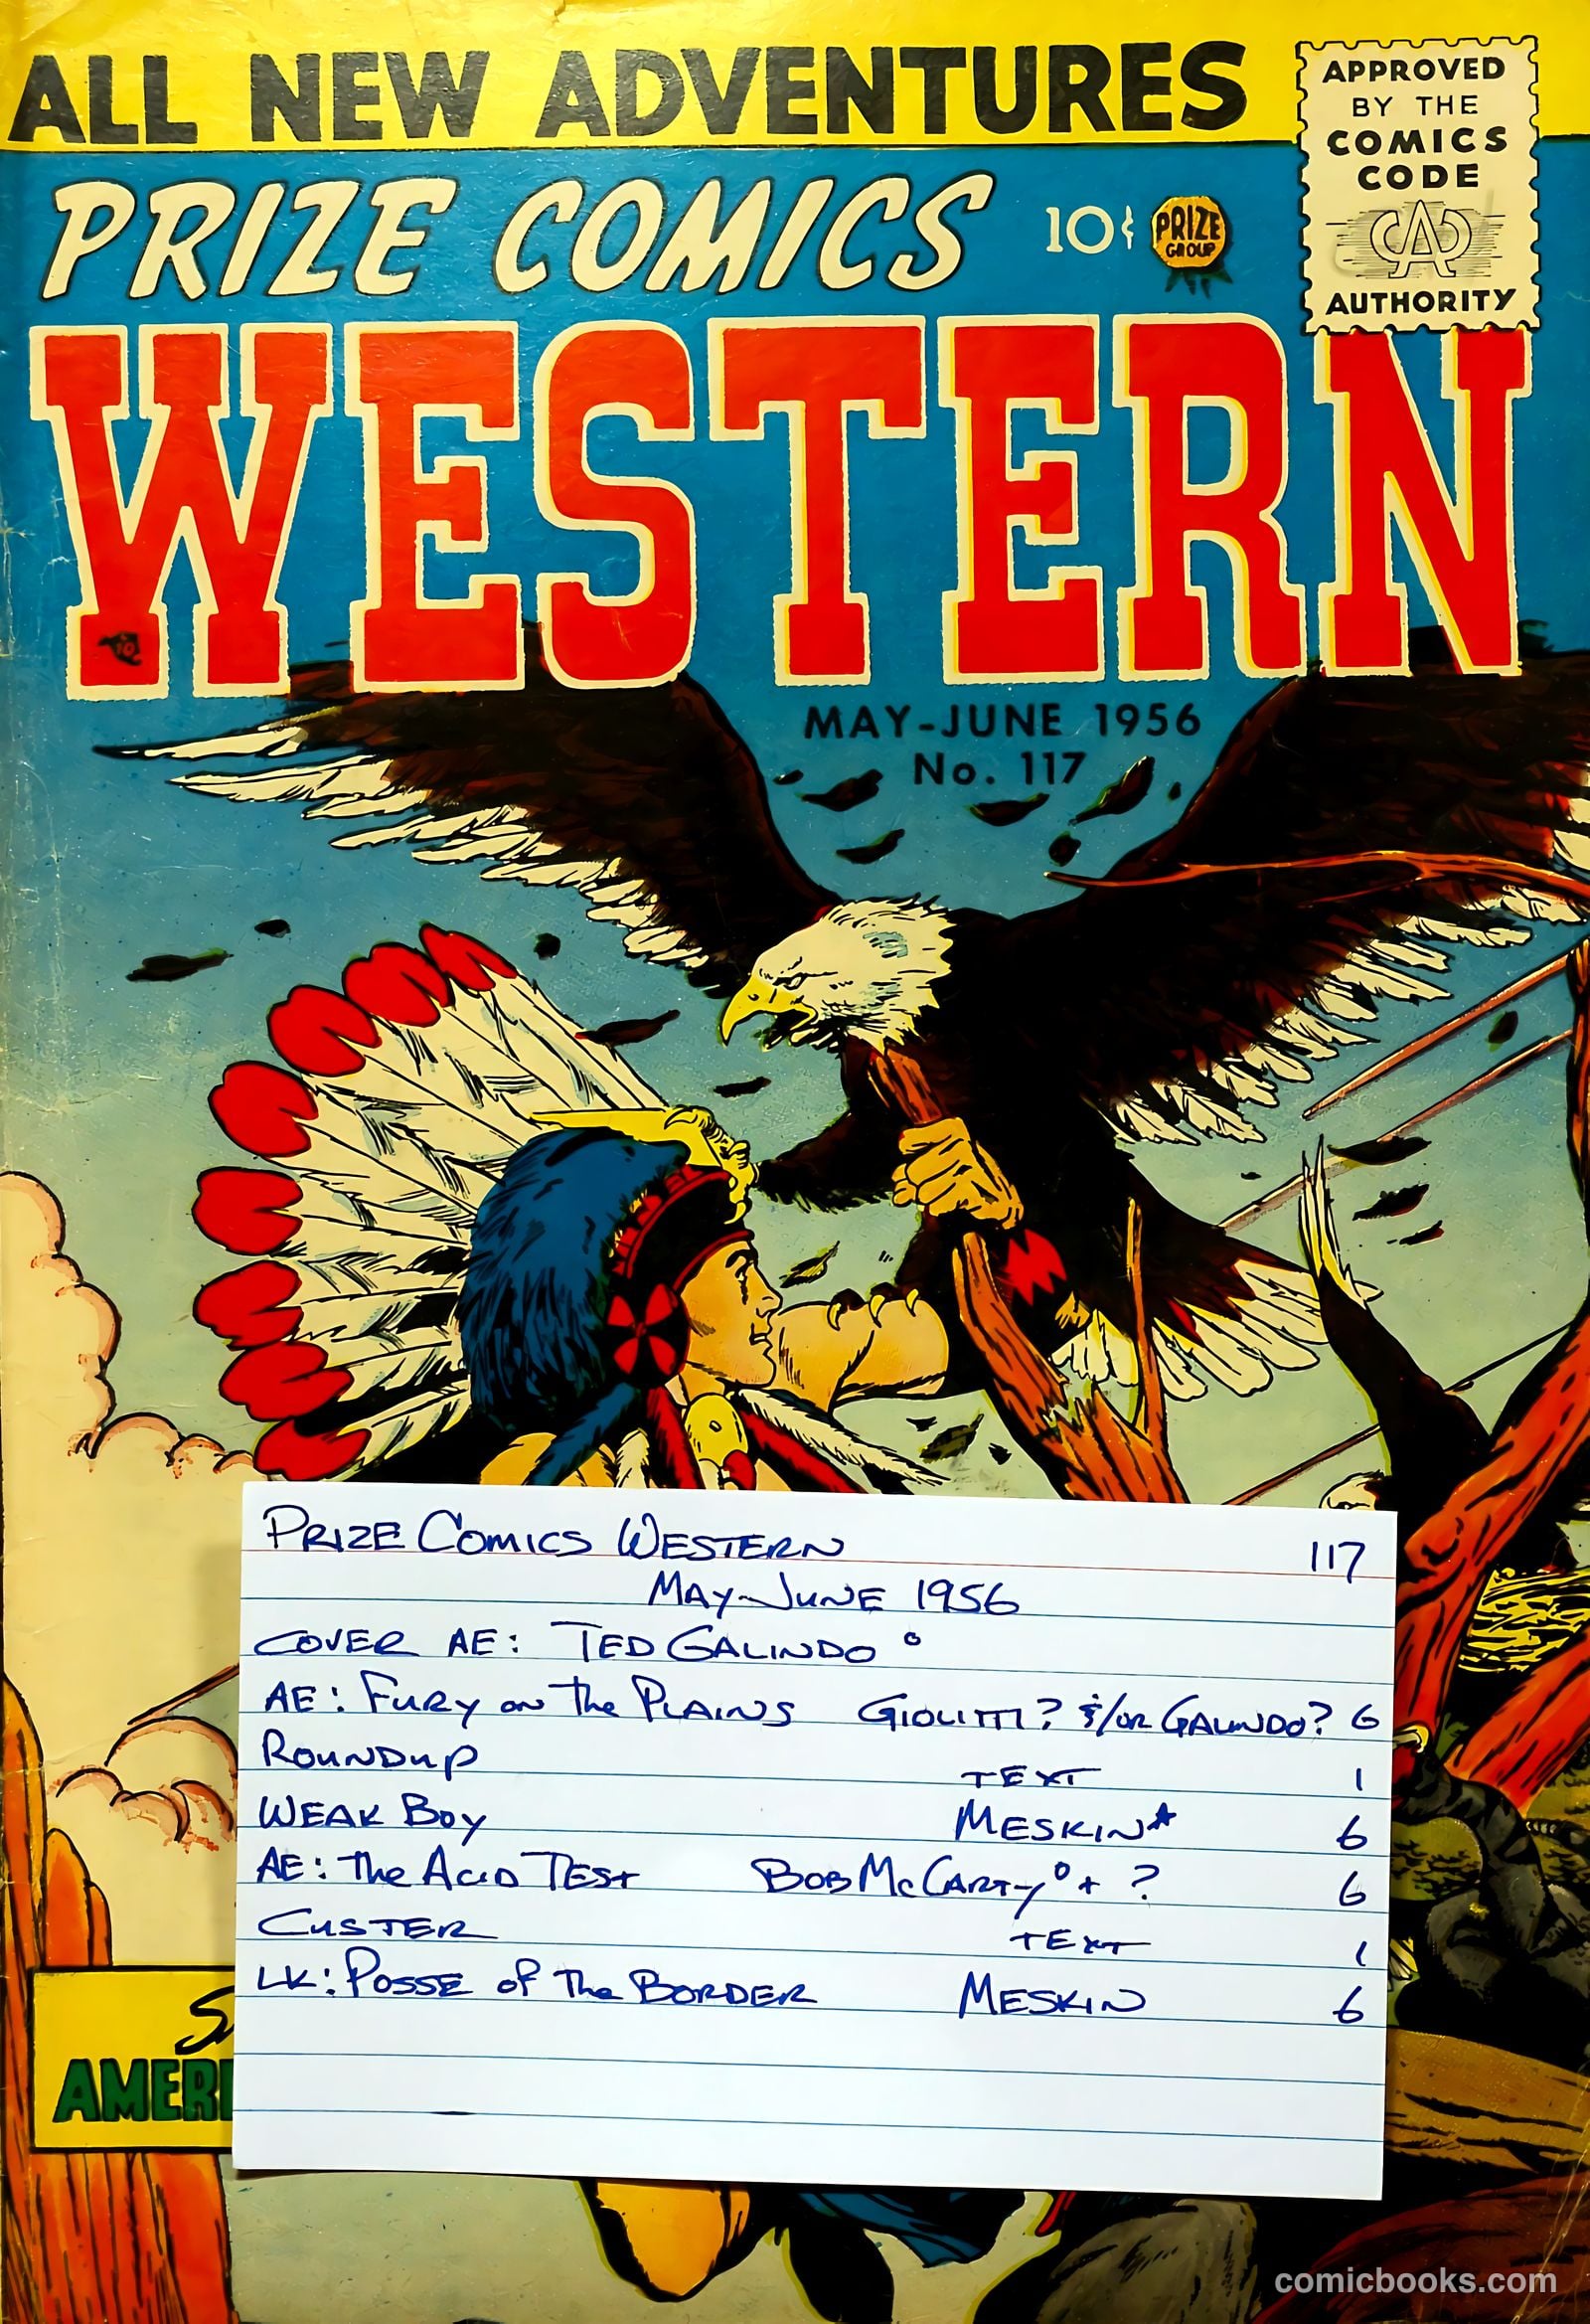 ALL NEW ADVENTURES
APPROVED
BY THE
COMICS
CODE
CA
AUTHORITY
PRIZE COMICS 10¢ PRIZE
GROUP
WESTERN
MAY-JUNE 1956
No. 117
PRIZE COMICS WESTERN 117
MAY-JUNE 1956
COVER AE: TED GALINDO °
AE: FURY on The PLAINS GIOLITTI? &/OR GALINDO? 6
ROUNDUP TEXT 1
WEAK BOY MESKIN* 6
AE: The ACID TEST BOB McCARTY° + ? 6
CUSTER TEXT 1
LK: POSSE of The BORDER MESKIN 6
comicbooks.com